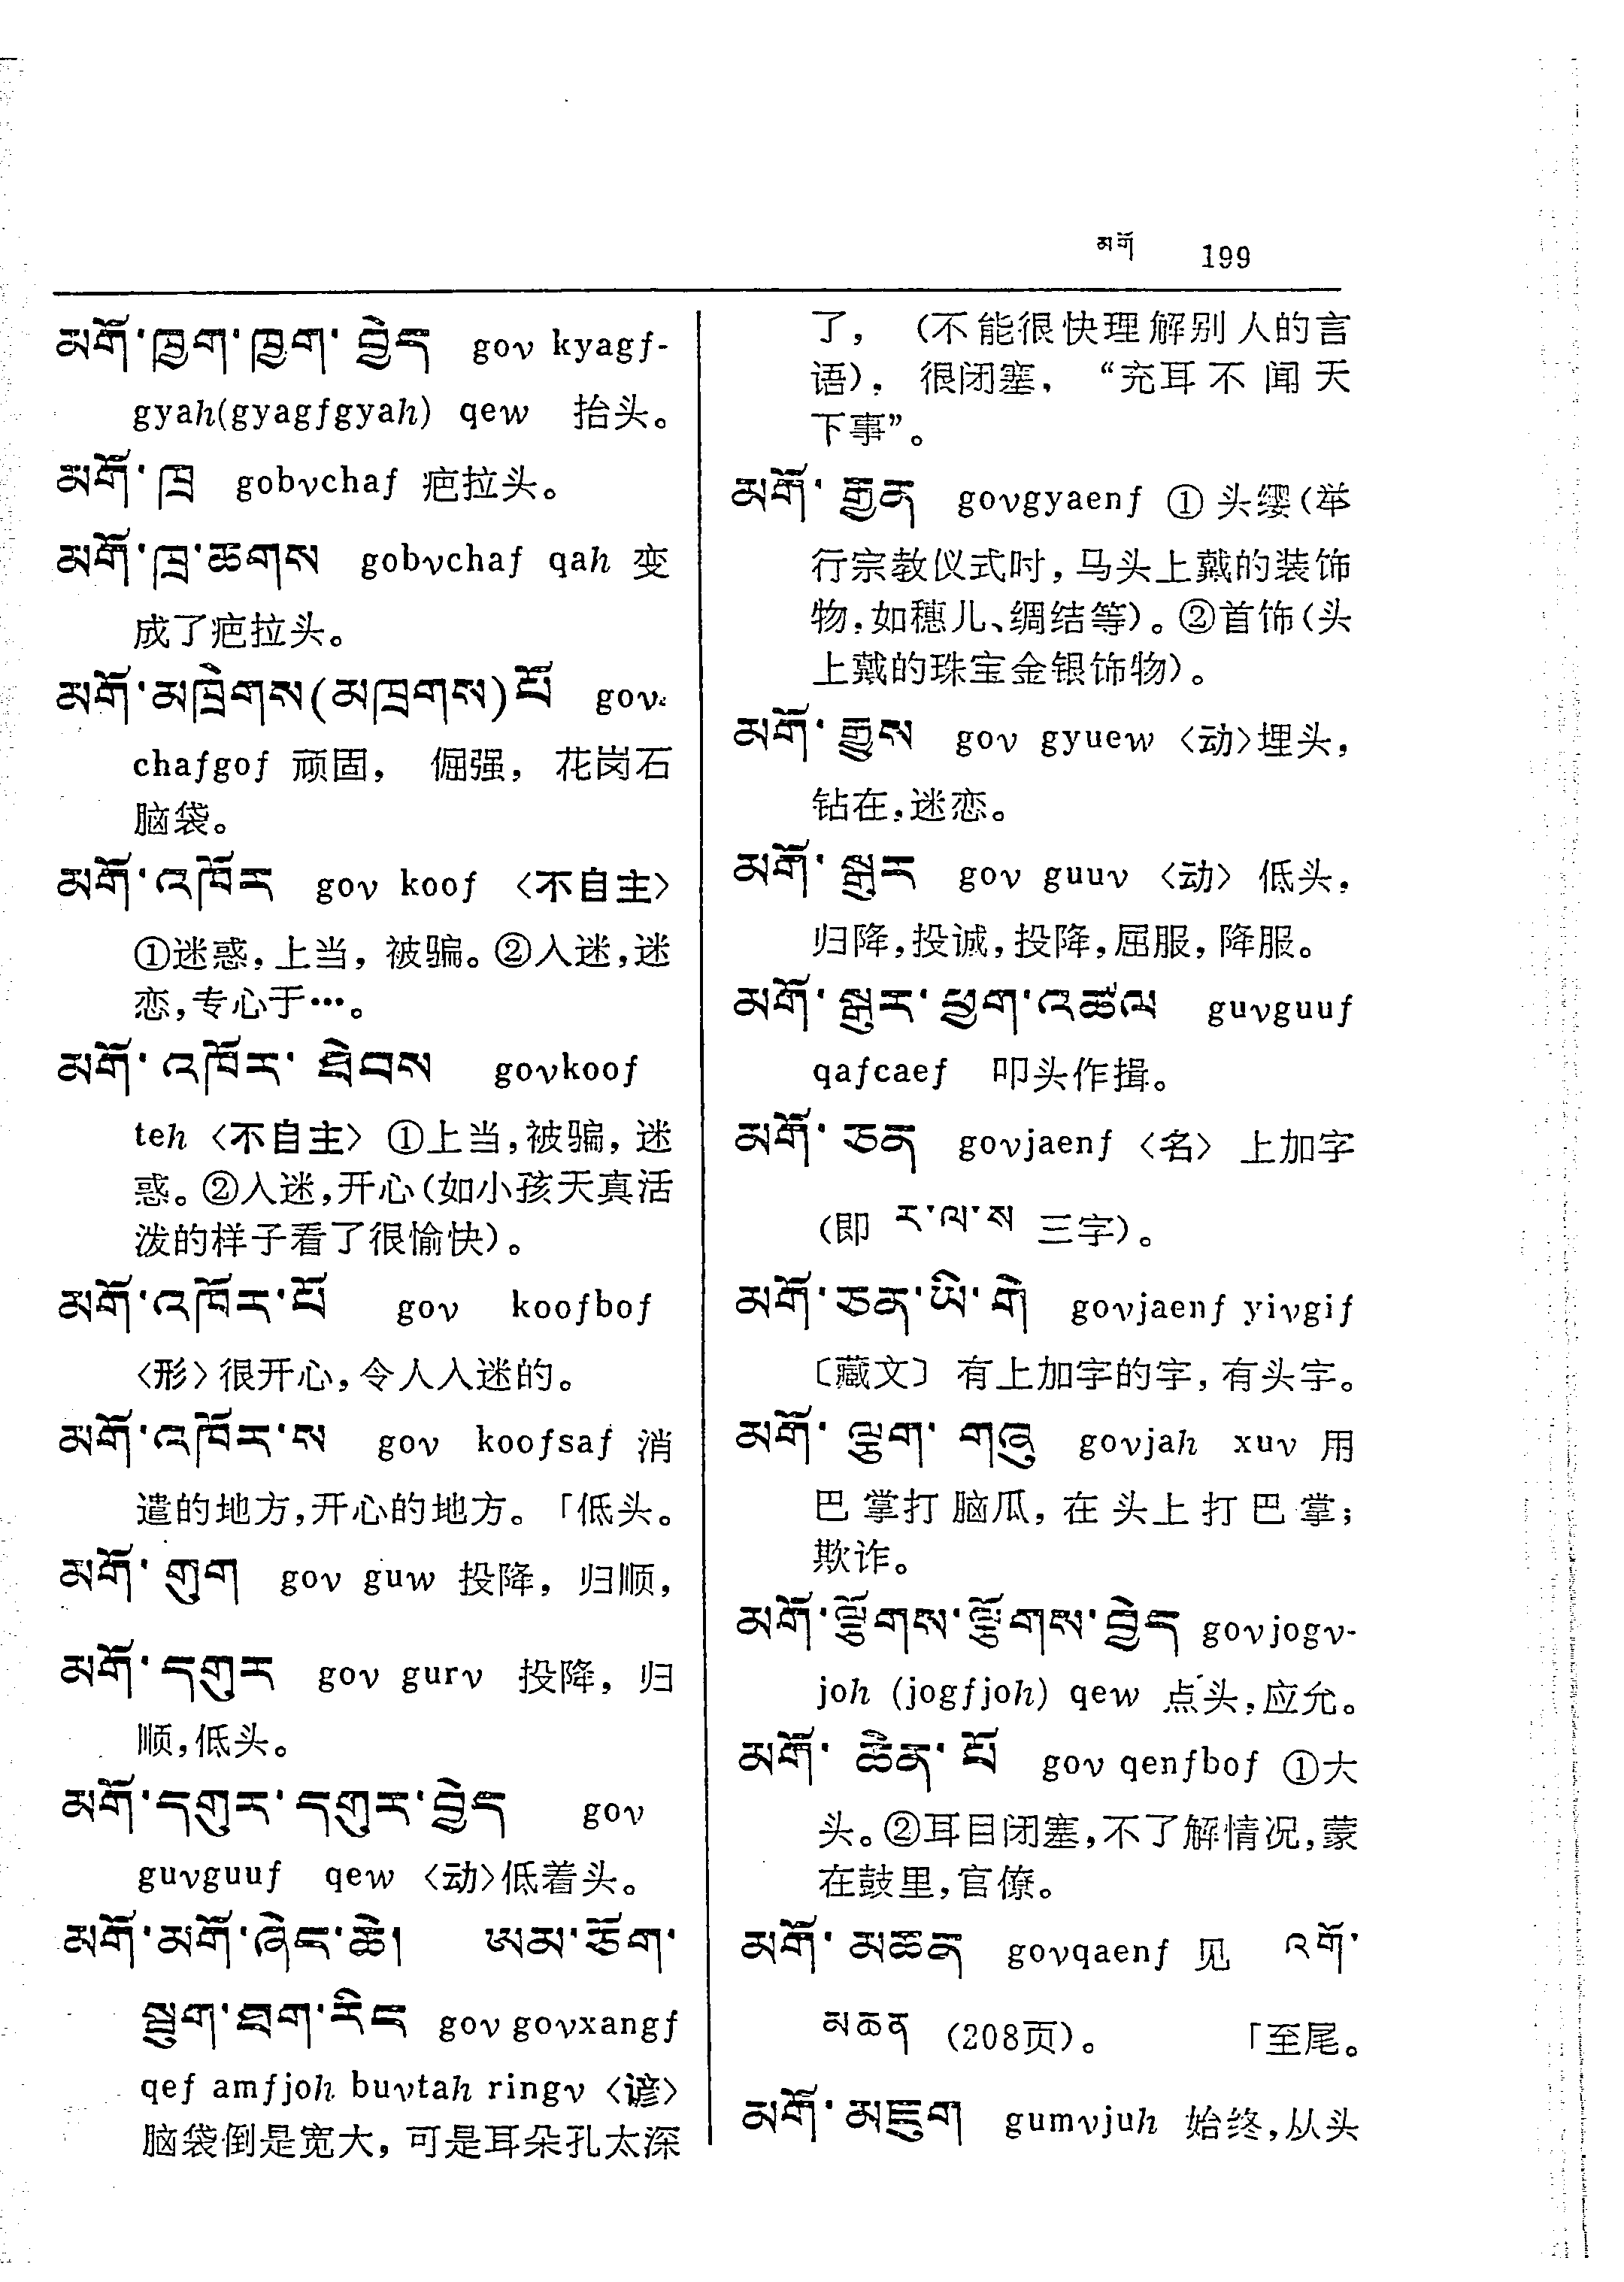 མགོ 199
མགོ་ཁྱག་ཁྱག་བྱེད gov kyagf-
gyah(gyagfgyah) qew 抬头。
མགོ་ཁྲ gobvchaf 疤拉头。
མགོ་ཁྲ་ཆགས gobvchaf qah 变
成了疤拉头。
མགོ་མཁྲེགས(མཁྲགས)པོ gov-
chafgof 顽固， 倔强，花岗石
脑袋。
མགོ་འཁོར gov koof 〈不自主〉
①迷惑，上当，被骗。②入迷，迷
恋，专心于…。
མགོ་འཁོར་ཐེབས govkoof
teh 〈不自主〉①上当，被骗，迷
惑。②入迷，开心（如小孩天真活
泼的样子看了很愉快）。
མགོ་འཁོར་པོ gov koofbof
〈形〉很开心，令人入迷的。
མགོ་འཁོར་ས gov koofsaf 消
遣的地方，开心的地方。「低头。
མགོ་གུག gov guw 投降，归顺，
མགོ་དགུར gov gurv 投降，归
顺，低头。
མགོ་དགུར་དགུར་བྱེད gov
guvguuf qew 〈动〉低着头。
མགོ་མགོ་ཞེང་ཆེ། ཨམ་ཅོག་
སྦུག་ཐག་རིང gov govxangf
qef amfjoh buvtah ringv 〈谚〉
脑袋倒是宽大，可是耳朵孔太深
了，（不能很快理解别人的言
语），很闭塞，“充耳不闻天
下事”。
མགོ་རྒྱན govgyaenf ①头缨（举
行宗教仪式时，马头上戴的装饰
物，如穗儿、绸结等）。②首饰（头
上戴的珠宝金银饰物）。
མགོ་རྒྱུས gov gyuew 〈动〉埋头，
钻在，迷恋。
མགོ་སྒུར gov guuv 〈动〉低头，
归降，投诚，投降，屈服，降服。
མགོ་སྒུར་ཕྱག་འཚལ guvguuf
qafcaef 叩头作揖。
མགོ་ཅན govjaenf 〈名〉上加字
（即 ར་ལ་ས 三字）。
མགོ་ཅན་ཡི་གེ govjaenf yivgif
〔藏文〕有上加字的字，有头字。
མགོ་ལྕག་གཞུ govjah xuv 用
巴掌打脑瓜，在头上打巴掌；
欺诈。
མགོ་ལྕོགས་ལྕོགས་བྱེད govjogv-
joh (jogfjoh) qew 点头，应允。
མགོ་ཆེན་པོ gov qenfbof ①大
头。②耳目闭塞，不了解情况，蒙
在鼓里，官僚。
མགོ་མཚན govqaenf 见 འགོ་
མཚན （208页）。 「至尾。
མགོ་མཇུག gumvjuh 始终，从头